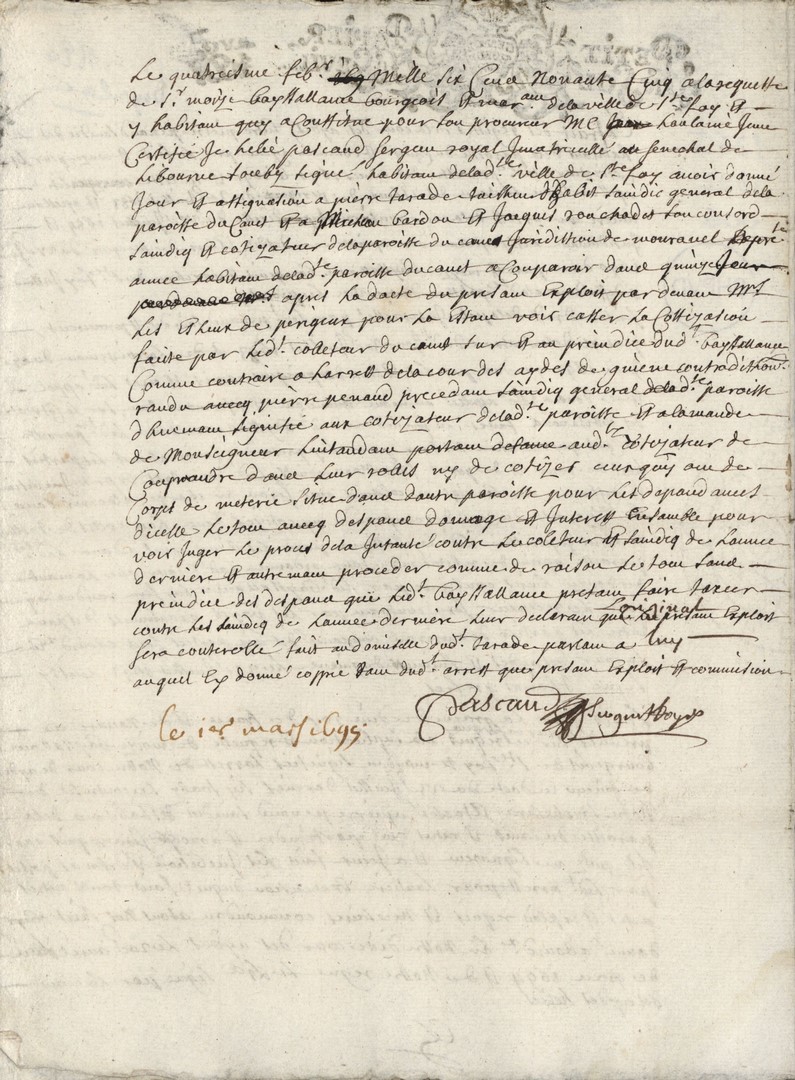 Le quatriesme febr. Mille six Cens Nonante Cinq a la requette
de Sr. moize bayHallance bourgeois et mar. de la ville de Ste. foy et
y habitam quy a Constitue pour son procureur Me
Certiffie Je hebé pascaud sergen royal Jmatriculle au senechal de
Libourne soubz signé habitam de lad.te ville de Ste foy avoir donné
Jour et assignation a pierre tarade saindic general de la
paroisse du Canet et a Micheau bardou et Jacques rouchades son consord
saindiq et cotizateur de la paroisse du canet Juridittion de mouravel
annee habitans de lad.te paroisse du canet a Conparoir dans quinze Jour
apres la dacte du presam Exploit par devam Mrs
Les Esleux de perigeux pour La Estam voir casser la Cottizaœu
faite par Led.t colleteur du canet sur et au preiudice dud.t bayHallance
Comme contraire a Larrest de la cour des aydes de guiene
randu avecq pierre penaud precedam saindiq general de lad.te paroisse
signifié aux cotizateur de lad.te paroisse et a lamande
de Monseigneur Lintandam portam aud.tz cotizateur de
Conprandre dans Leur rolles ny de cotizer ceux quy on de
Corps de meterie situe dans dautre paroisse pour Les depandances
dicelle Le tout avecq despans domage et Interest Ensamble pour
voir Juger Le proces de la Jnstante contre Le coleteur et saindiq de Lannee
derniere et autremam proceder comme de raison Le tout sans
preiudice des despans que Led.t bayHallance pretam faire taxer
contre Les saindiq de Lannee derniere Leur declaram que Loriginal du presam Exploit
sera controlle fait au domicille dud.t tarade parlam a luy
auquel Ey donné coppie tam dud.t arrest que presam Exploit et commission
Pascaud
le 1er mars 1695